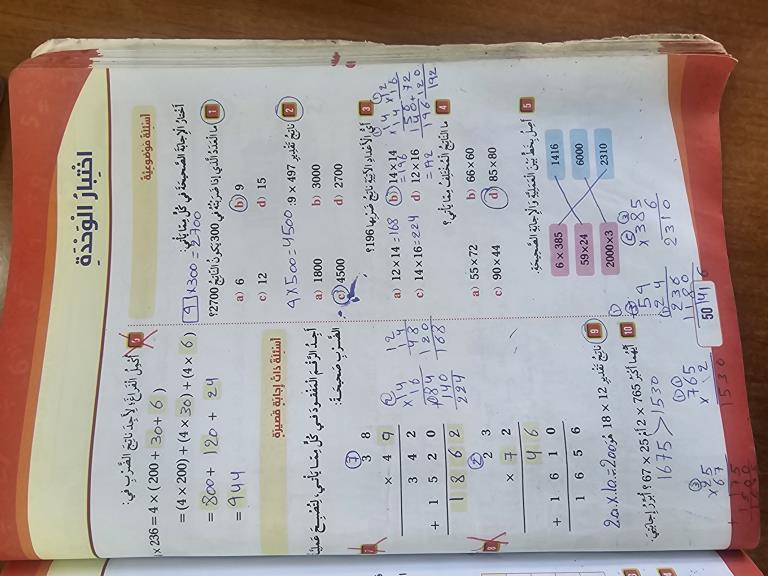 اختبار الوحدة
أسئلة موضوعية
أختار الإجابة الصحيحة في كل مما يأتي:
1 ما العدد الذي إذا ضربته في 300 يكون الناتج 2700؟
9 x 300 = 2700
a) 6 b) 9
c) 12 d) 15
2 ناتج تقدير 497 × 9:
9 x 500 = 4500
a) 1800 b) 3000
c) 4500 d) 2700
3 أي الأعداد الآتية ناتج ضربها 196؟
a) 12 × 14 = 168 b) 14 × 14 = 196
c) 14 × 16 = 224 d) 12 × 16 = 192
4 ما الناتج المختلف مما يأتي؟
a) 55 × 72 b) 66 × 60
c) 90 × 44 d) 85 × 80
5 أصل بخط بين العملية والإجابة الصحيحة:
6 × 385 1416
59 × 24 6000
2000 × 3 2310
385
× 6
2310
59
24
236
1180
1416
6 أكمل الفراغ؛ لأجد ناتج الضرب في:
× 236 = 4 × (200 + 30 + 6)
= (4 × 200) + (4 × 30) + (4 × 6)
= 800 + 120 + 24
= 944
أسئلة ذات إجابة قصيرة
أجد الرقم المفقود في كل مما يأتي، لتصبح عملية
الضرب صحيحة:
7
3 8
× 4 9
3 4 2
+ 1 5 2 0
1 8 6 2
12
14
48
120
168
14
16
84
140
224
8
2 3
× 7 2
4 6
+ 1 6 1 0
1 6 5 6
9 ناتج تقدير 12 × 18 هو
20 x 10 = 200
10 أيهما أكبر 765 × 2 أم 25 × 67؟ أبرر إجابتي.
1675 > 1530
765
× 2
1530
25
×67
175
50